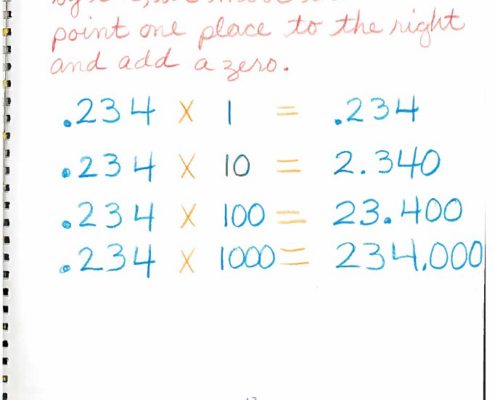 point one place to the right
and add a zero.
.234 × 1 = .234
.234 × 10 = 2.340
.234 × 100 = 23.400
.234 × 1000 = 234.000